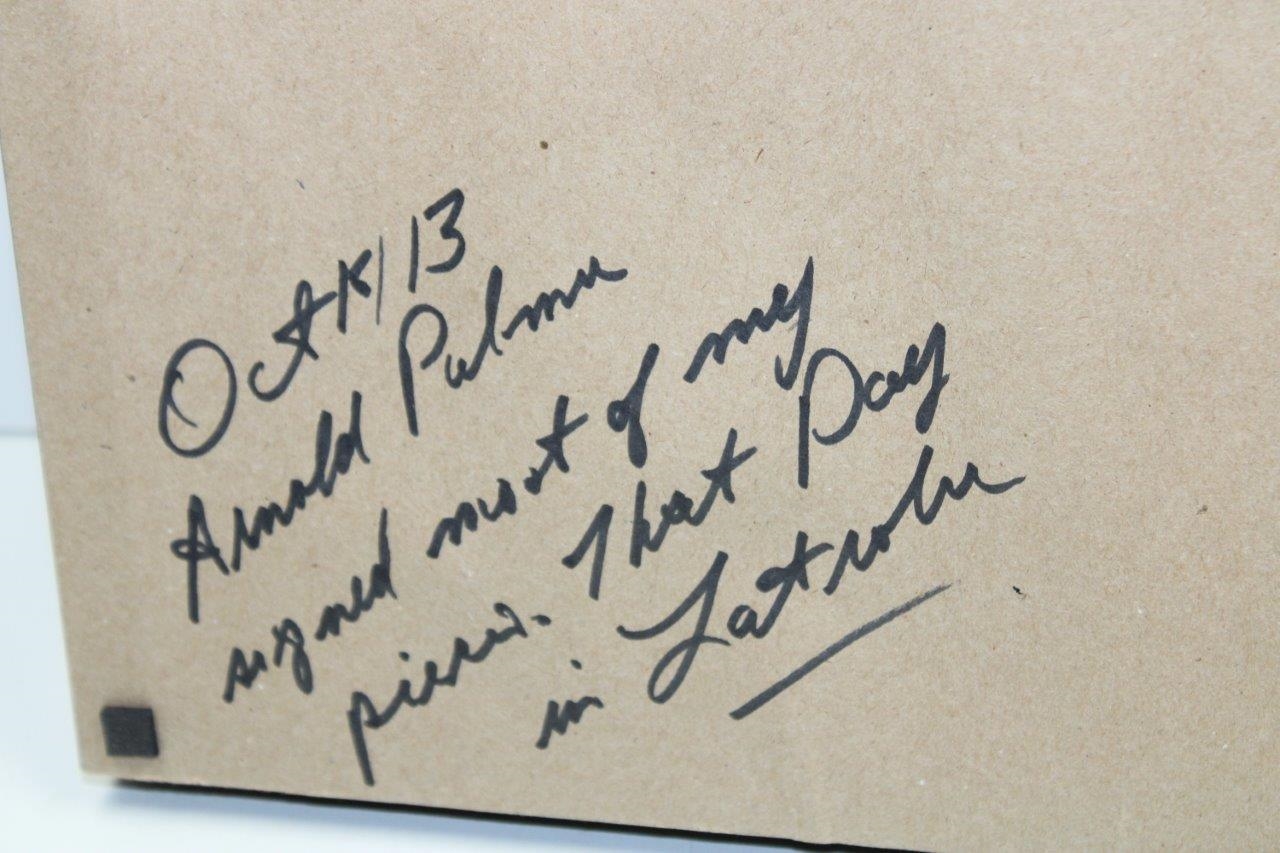 Oct 15/13
Arnold Palmer
signed most of my
pieces. That Day
in Latrobe